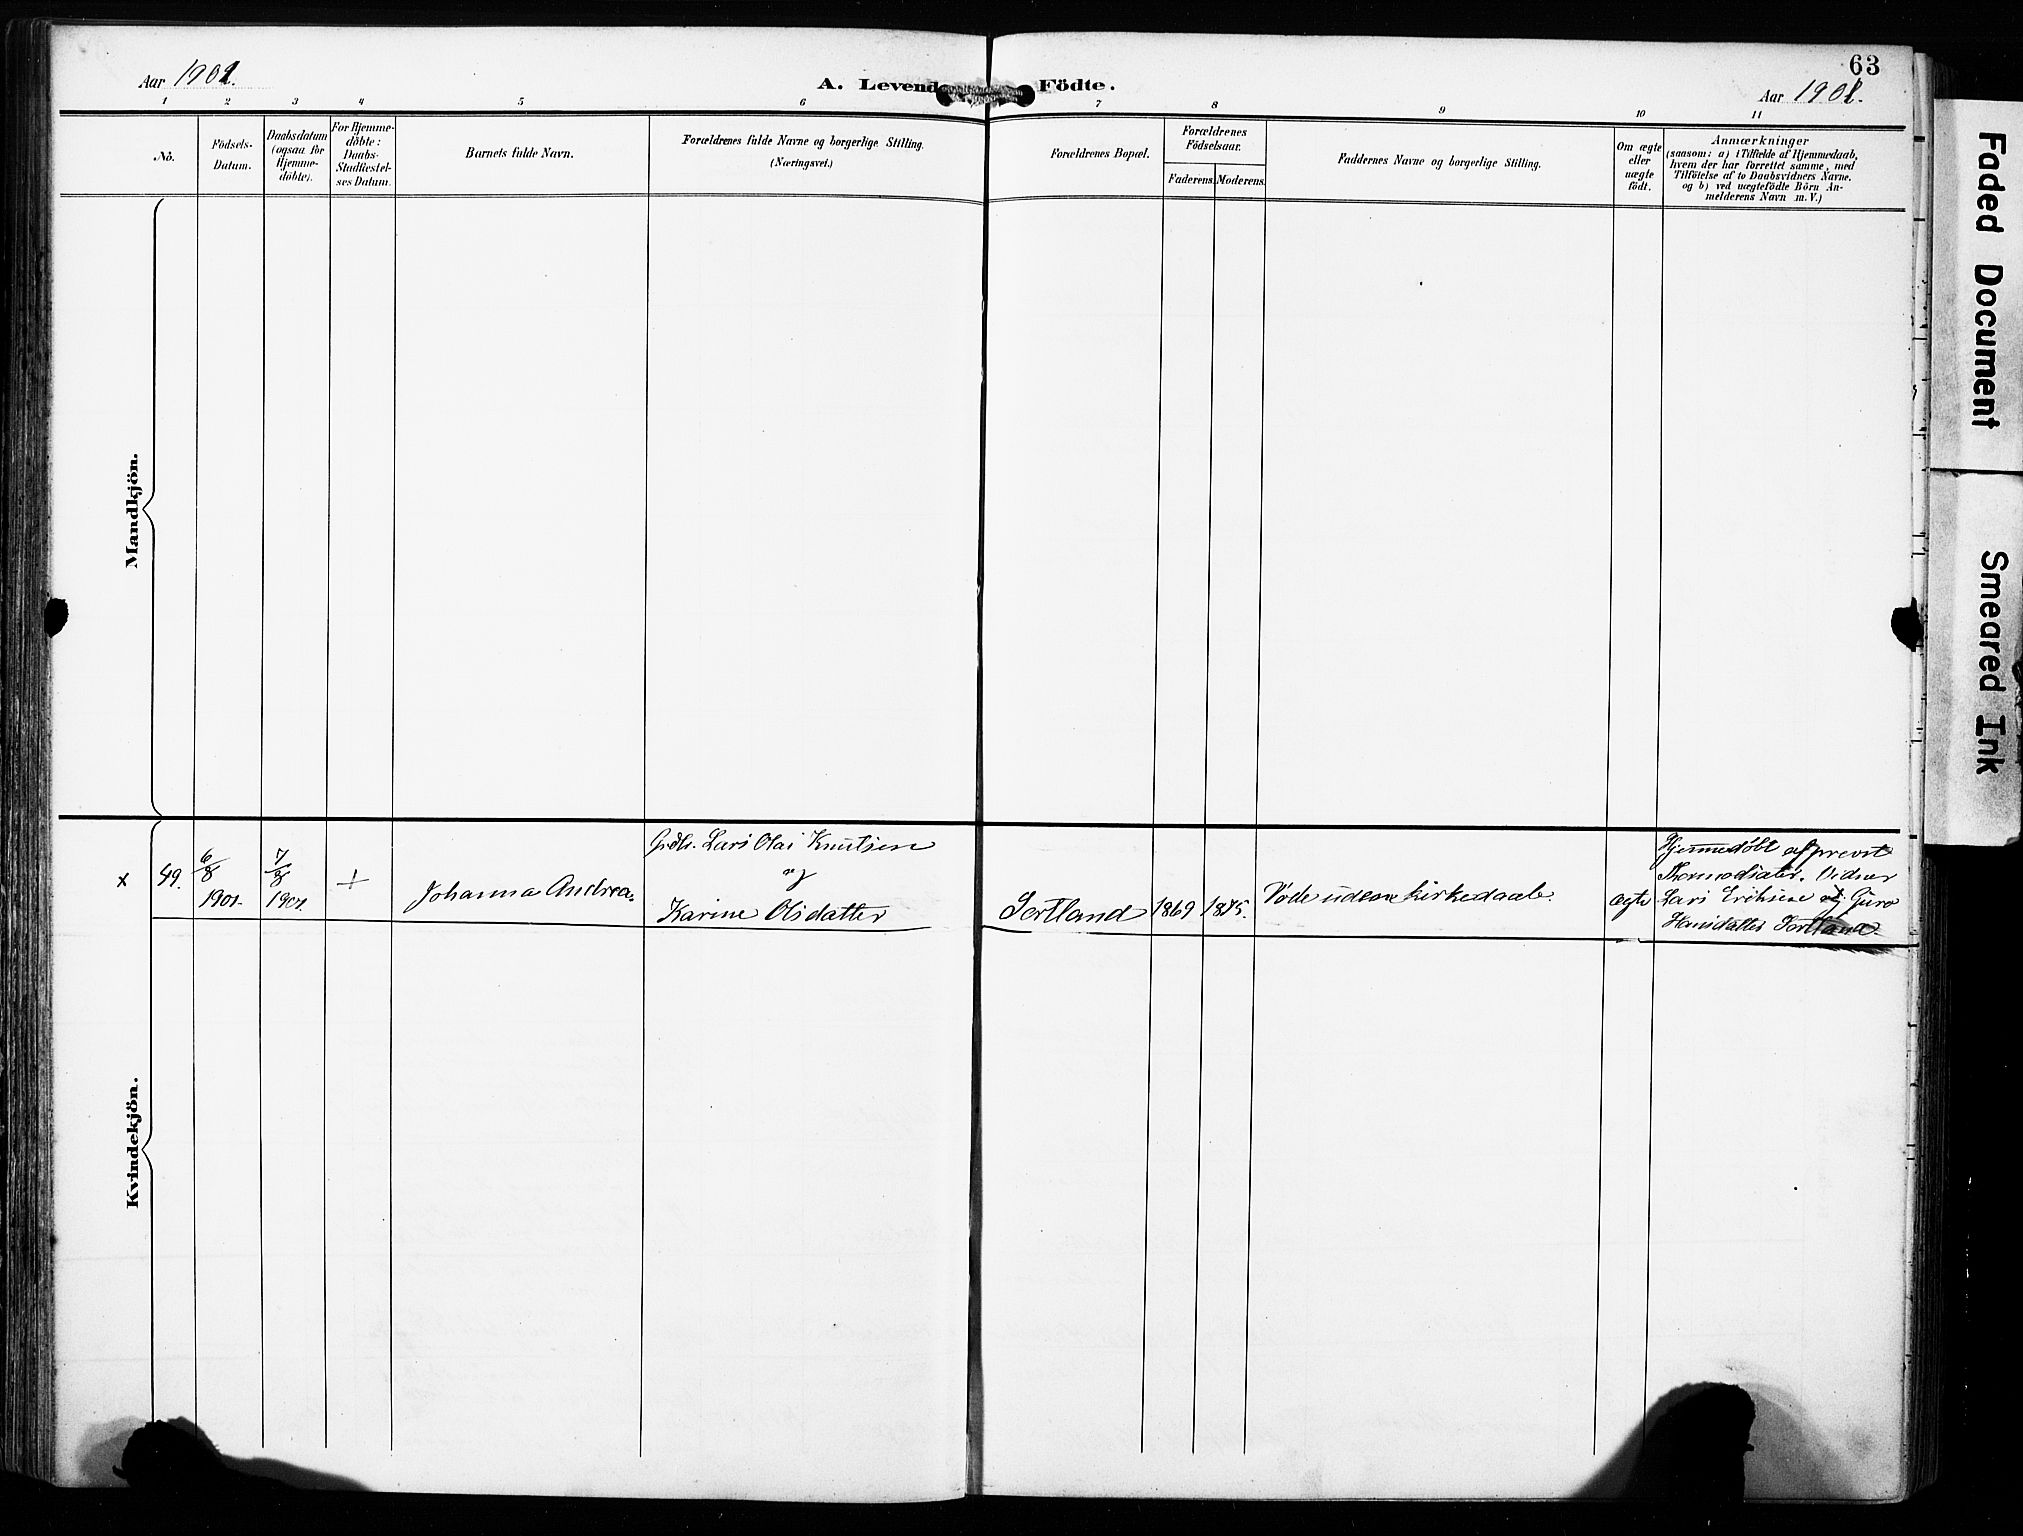 63
Aar 1901.
A. Levende Födte.
Aar 1901.
1 2 3 4 5 6 7 8 9 10 11
No.
Födsels-
Datum.
Daabsdatum
(ogsaa for
Hjemme-
döbte).
For Hjemme-
döbte:
Daabs-
Stadfæstel-
ses Datum.
Barnets fulde Navn.
Forældrenes fulde Navne og borgerlige Stilling.
(Næringsvei.)
Forældrenes Bopæl.
Forældrenes
Födselsaar.
Faderens.
Moderens.
Faddernes Navne og borgerlige Stilling.
Om ægte
eller
uægte
födt.
Anmærkninger
(saasom: a) i Tilfælde af Hjemmedaab,
hvem der har forrettet samme, med
Tilföielse af to Daabsvidners Navne,
og b) ved uægtefödte Börn An-
melderens Navn m. V.)
Mandkjön.
Kvindekjön.
x
49.
6/8
1901.
7/8
1901.
+
Johanna Andrea.
Lars Olai Knutsen
og
Karine Olsdatter
Sortland
1869
1875.
Døde uden kirkedaab.
ægte
Hjemmedøbt af provst
Vidner
Lars Eriksen og Guro
Hansdatter Sortland.
Faded Document
Smeared Ink